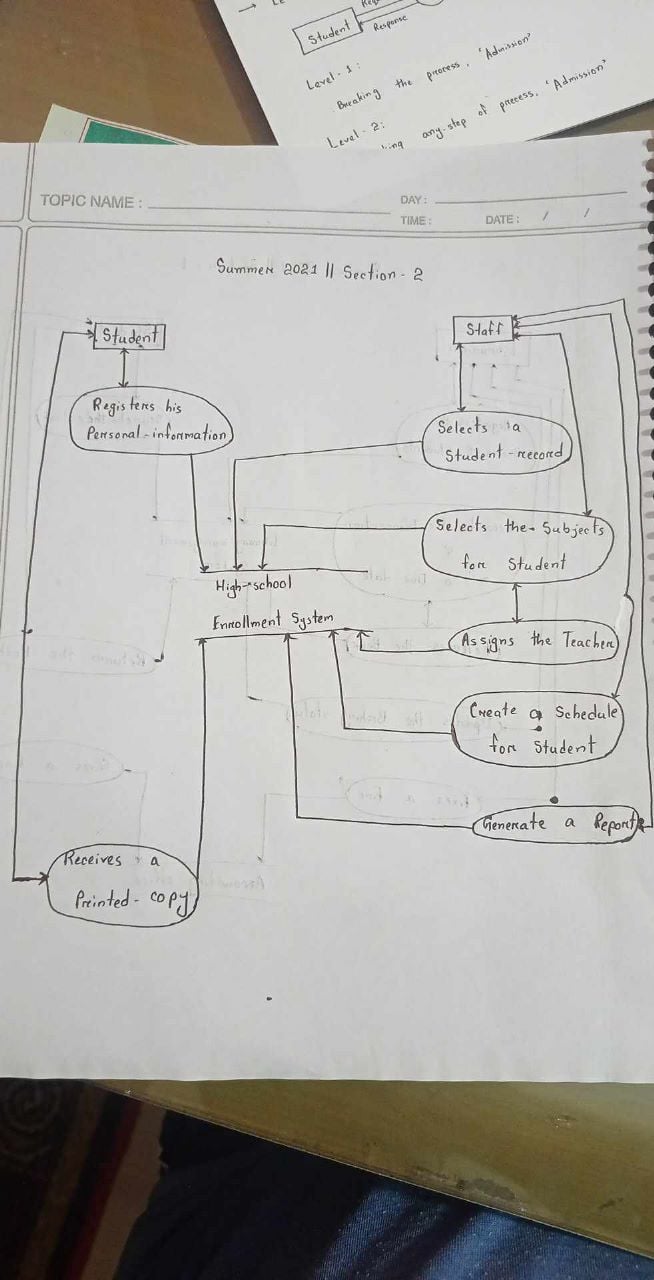 Student
Response
Level-1:
Breaking the process, 'Admission'
Level-2:
any-step of process, 'Admission'
TOPIC NAME :
DAY :
TIME :
DATE : / /
Summer 2021 || Section-2
Student
Staff
Registers his
Personal-information
Selects a
Student-record
Selects the Subjects
for Student
High-school
Enrollment System
Assigns the Teacher
Create a Schedule
for Student
Generate a Report
Receives a
Printed-copy